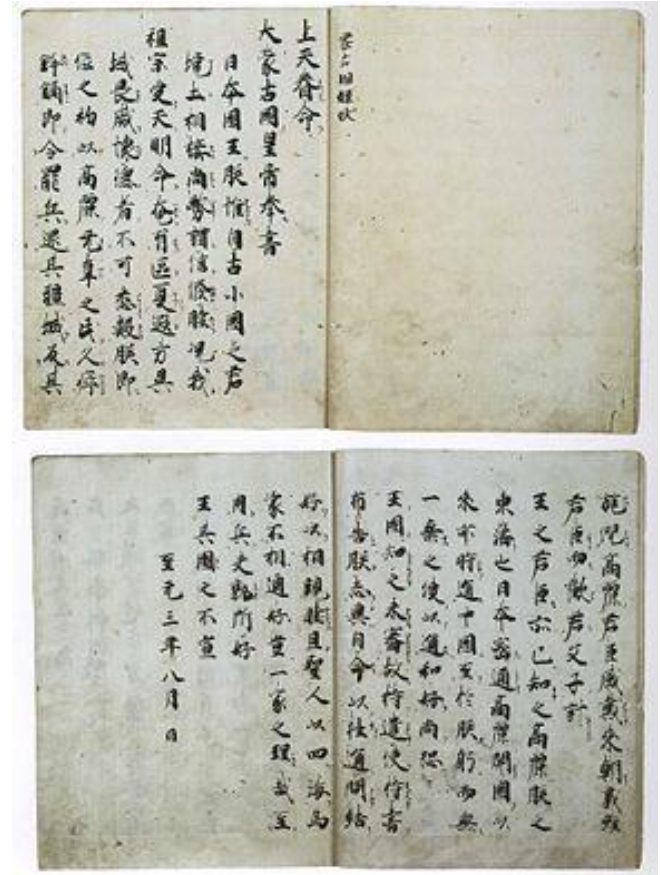 蒙古国牒状
上天眷命
大蒙古國皇帝奉書
日本國王朕惟自古小國之君
境土相接尚務講信修睦況我
祖宗受天明命奄有區夏遐方異
域畏威懷德者不可悉數朕即
位之初以高麗无辜之民久瘁
鋒鏑即令罷兵還其疆域反其
旄倪高麗君臣感戴來朝義雖
君臣而歡若父子計
王之君臣亦已知之高麗朕之
東藩也日本密邇高麗開國以
来亦時通中國至於朕躬而無
一乗之使以通和好尚恐
王國知之未審故特遣使持書
布告朕志冀自今以往通問結
好以相親睦且聖人以四海為
家不相通好豈一家之理哉至
用兵夫孰所好
王其圖之不宣
至元三年八月 日